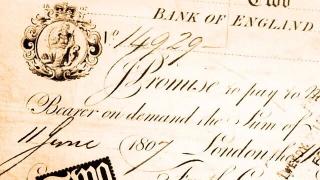 Two
BANK OF ENGLAND
18 07
No 14929
I Promise to pay to
Bearer on demand the Sum of
11 June 1807 London the 11
Two